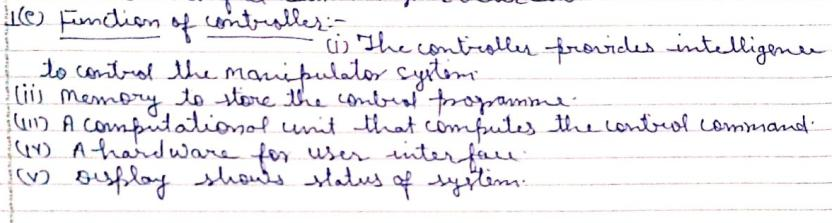 1(e) Function of controller:-
(i) The controller provides intelligence
to control the manipulator system.
(ii) Memory to store the control programme.
(iii) A computational unit that computes the control command.
(iv) A hardware for user interface.
(v) Display shows status of system.